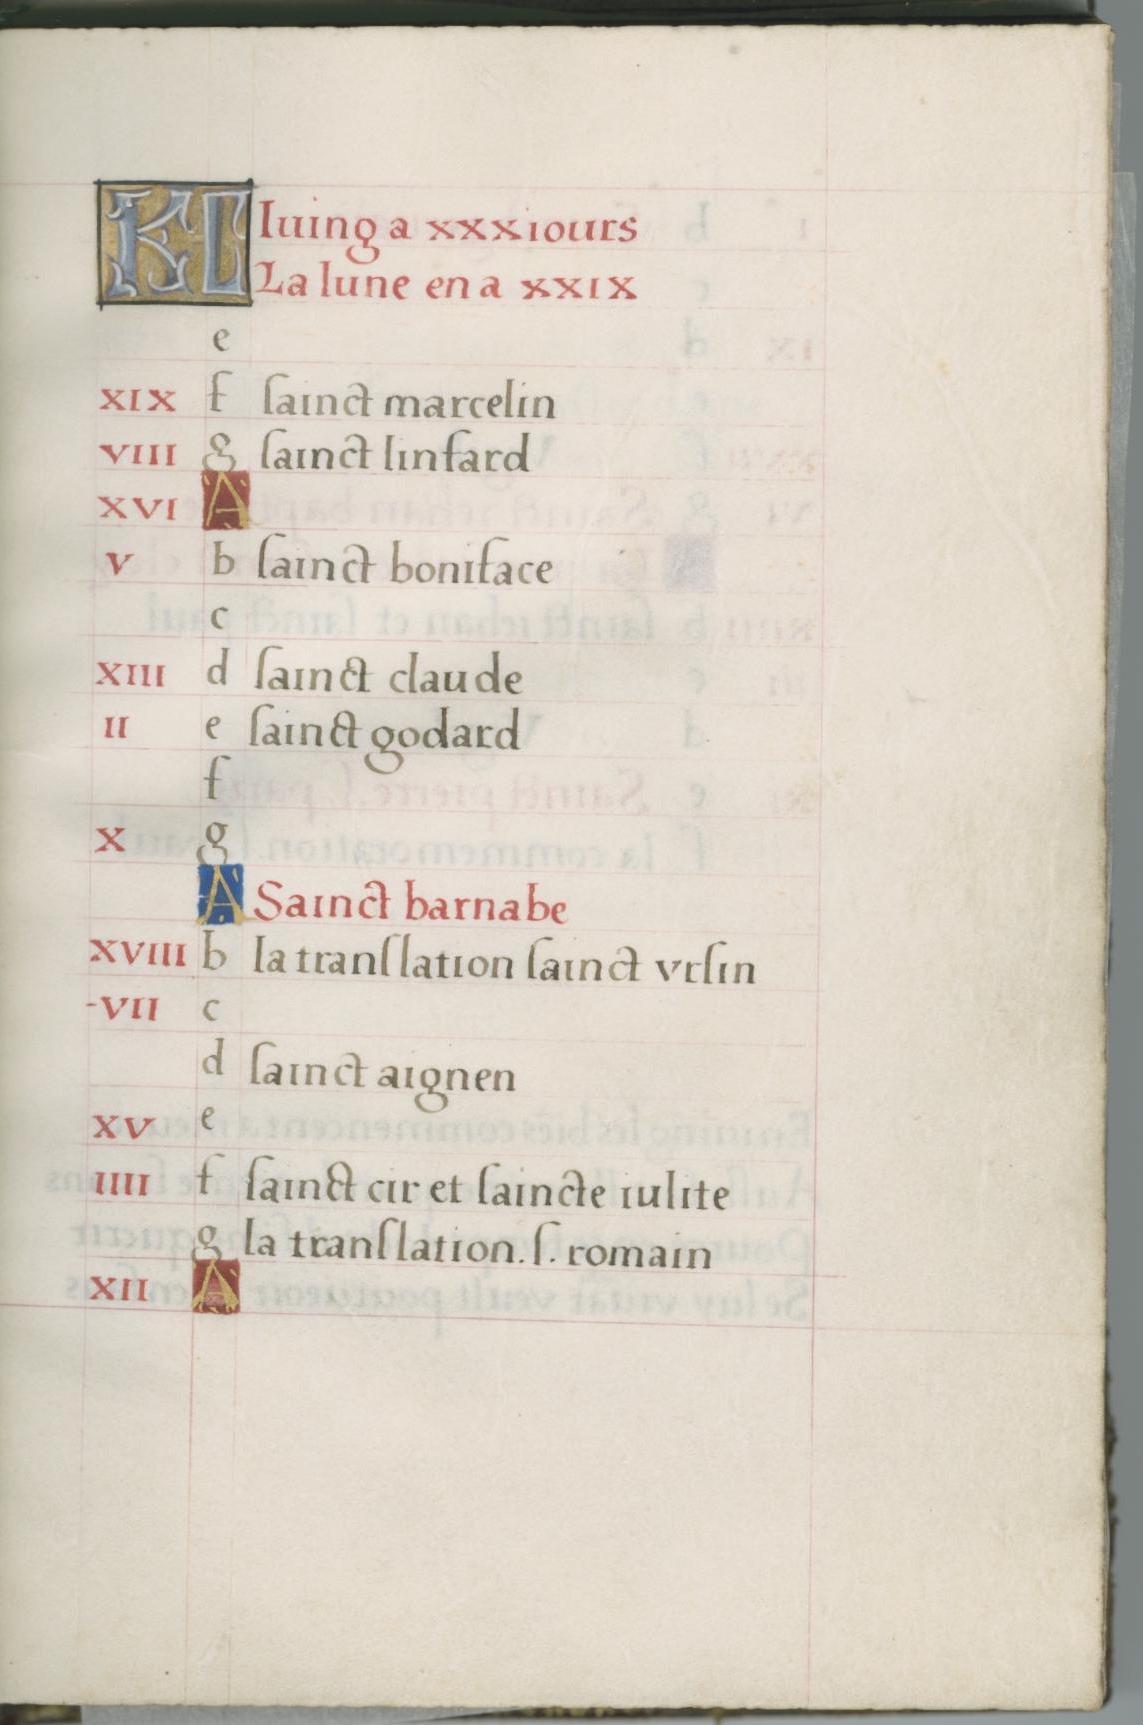 KL Iuing a xxx iours
La lune en a xxix
e
xix f sainct marcelin
viii g sainct linfard
xvi A
v b sainct boniface
c
xiii d sainct claude
ii e sainct godard
f
x g
A Sainct barnabe
xviii b la translation sainct vrsin
vii c
d sainct aignen
xv e
iiii f sainct cir et saincte iulite
g la translation. s. romain
xii A